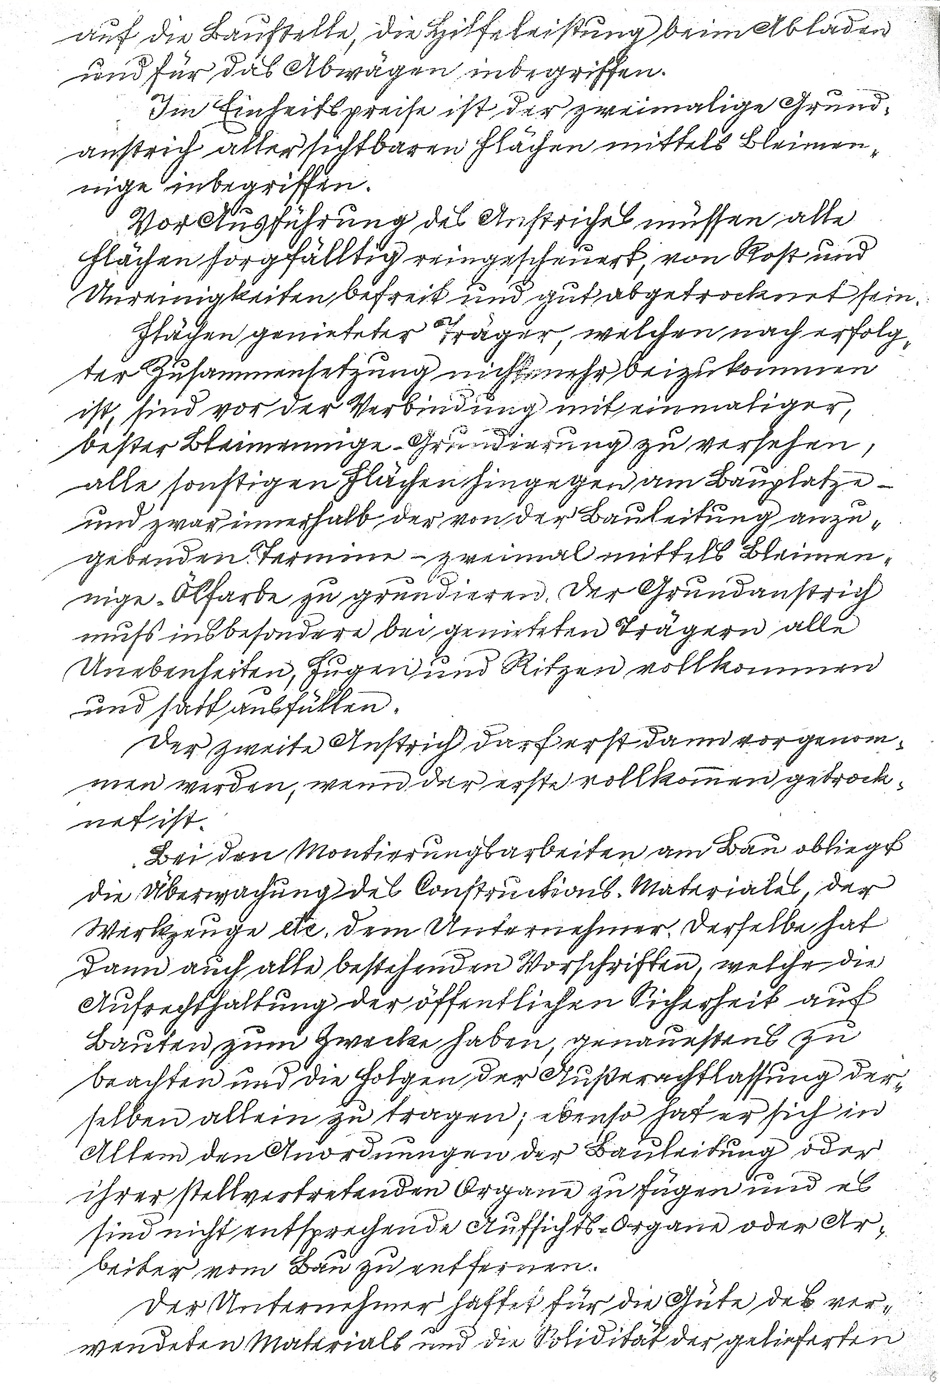 auf die Baustelle, die Hilfeleistung beim Abladen
und für das Abwägen inbegriffen.
Im Einheitspreise ist der zweimalige Grund-
anstrich aller sichtbaren Flächen mittels Bleimen-
nige inbegriffen.
Vor Ausführung des Anstriches müssen alle
Flächen sorgfälltig reingescheuert, von Rost und
Unreinigkeiten befreit und gut abgetrocknet sein.
Flächen genieteter Träger, welchen nach erfolg-
ter Zusammensetzung nicht mehr beizukommen
ist, sind vor der Verbindung mit einmaliger,
bester Bleimennige-Grundierung zu versehen,
alle sonstigen Flächen hingegen am Bauplatze –
und zwar innerhalb der von der Bauleitung anzu-
gebenden Termine – zweimal mittels Bleimen-
nige-Ölfarbe zu grundieren. Der Grundanstrich
muss insbesondere bei genieteten Trägern alle
Unebenheiten, Fugen und Ritzen vollkommen
und satt ausfüllen.
Der zweite Anstrich darf erst dann vorgenom-
men werden, wenn der erste vollkom̄en getrock-
net ist.
Bei den Montierungsarbeiten am Bau obliegt
die Überwachung des Constructions-Materiales, der
Werkzeuge etc. dem Unternehmer. Derselbe hat
dann auch alle bestehenden Vorschriften, welche die
Aufrechthaltung der öffentlichen Sicherheit auf
Bauten zum Zwecke haben, genauestens zu
beachten und die Folgen der Außerachtlassung der-
selben allein zu tragen; ebenso hat er sich in
Allem den Anordnungen der Bauleitung oder
ihrer stellvertretenden Organe zu fügen und es
sind nicht entsprechende Aufsichts-Organe oder Ar-
beiter vom Bau zu entfernen.
Der Unternehmer haftet für die Güte des ver-
wendeten Materials und die Solidität der gelieferten
6